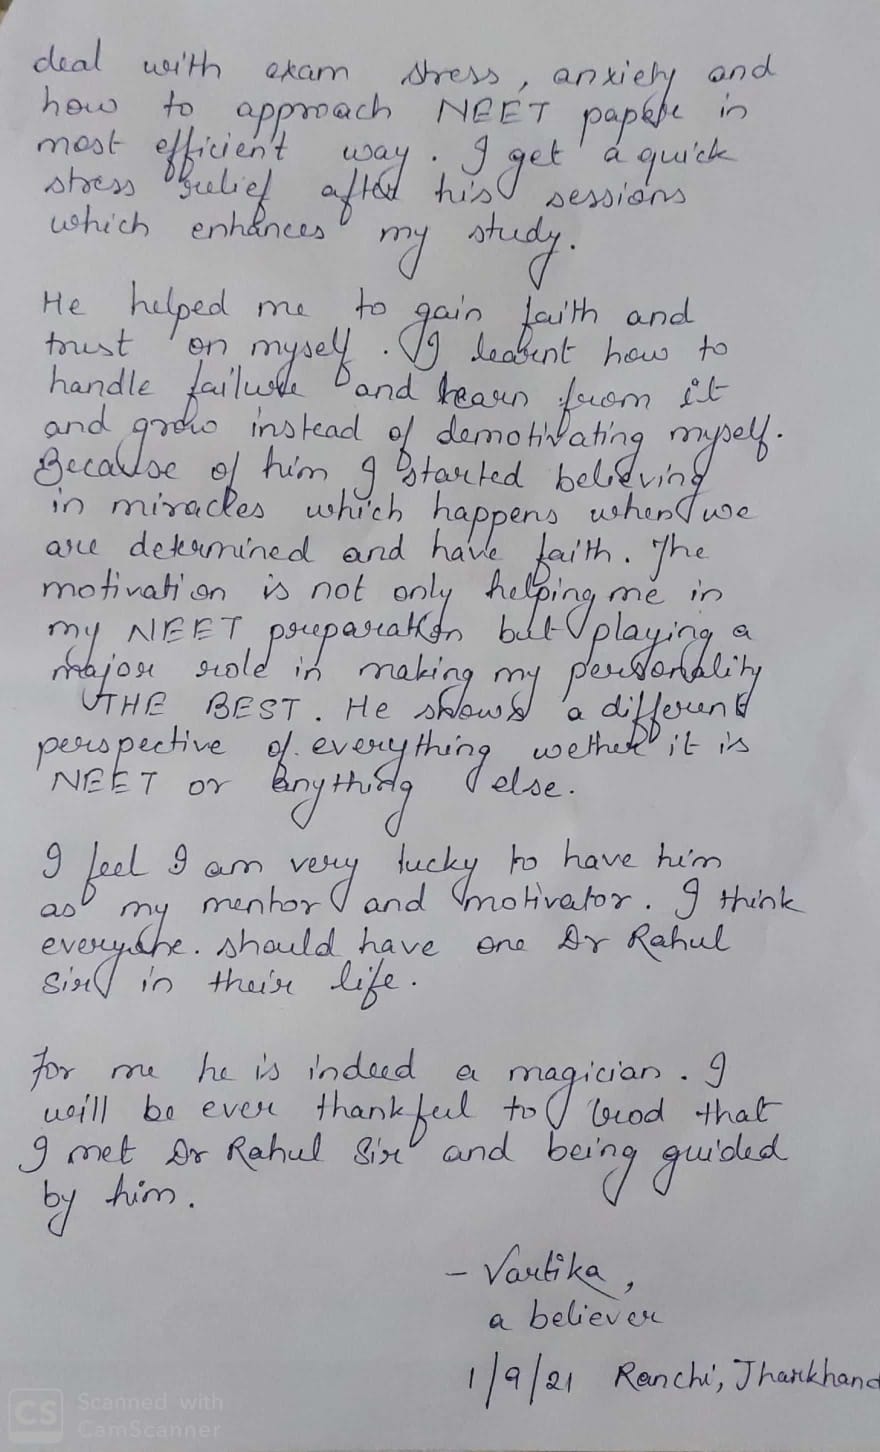 deal with exam stress, anxiety and
how to approach NEET paper in
most efficient way. I get a quick
stress relief after his sessions
which enhances my study.
He helped me to gain faith and
trust on myself. I learnt how to
handle failure and learn from it
and grow instead of demotivating myself.
Because of him I started believing
in miracles which happens when we
are determined and have faith. The
motivation is not only helping me in
my NEET preparation but playing a
major role in making my personality
THE BEST. He shows a different
perspective of everything wether it is
NEET or anything else.
I feel I am very lucky to have him
as my mentor and motivator. I think
everyone. should have one Dr Rahul
Sir in their life.
For me he is indeed a magician. I
will be ever thankful to God that
I met Dr Rahul Sir and being guided
by him.
- Vartika,
a believer
1/9/21 Ranchi, Jharkhand
CS Scanned with
CamScanner